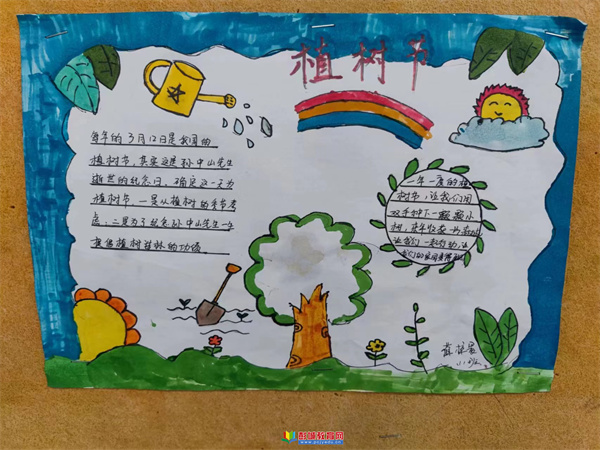 植树节
每年的3月12日是我国的
植树节,其实这是孙中山先生
逝世的纪念日,确定这一天为
植树节一是从植树的季节考
虑,二是为了纪念孙中山先生一生
提倡植树造林的功绩
一年一度的植
树节,让我们用
双手种下一颗颗小
树,来年收获一
让我们一起行动,让
我们的家园
彭城教育网